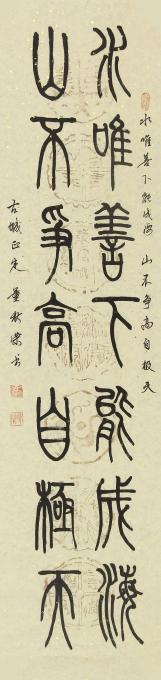 水唯善下能成海
山不争高自极天
水唯善下能成海 山不争高自极天
古城正定